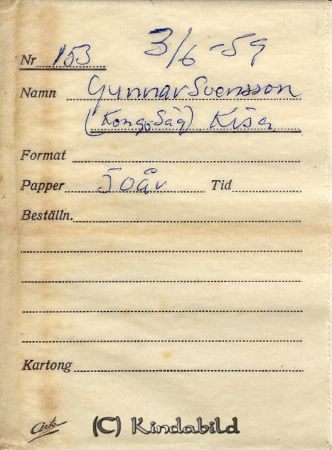 Nr 153 3/6-59
Namn Gunnar Svensson
(Kongs Säg) Kisa
Format
Papper 50år Tid
Beställn.
Kartong
Ark (C) Kindabild